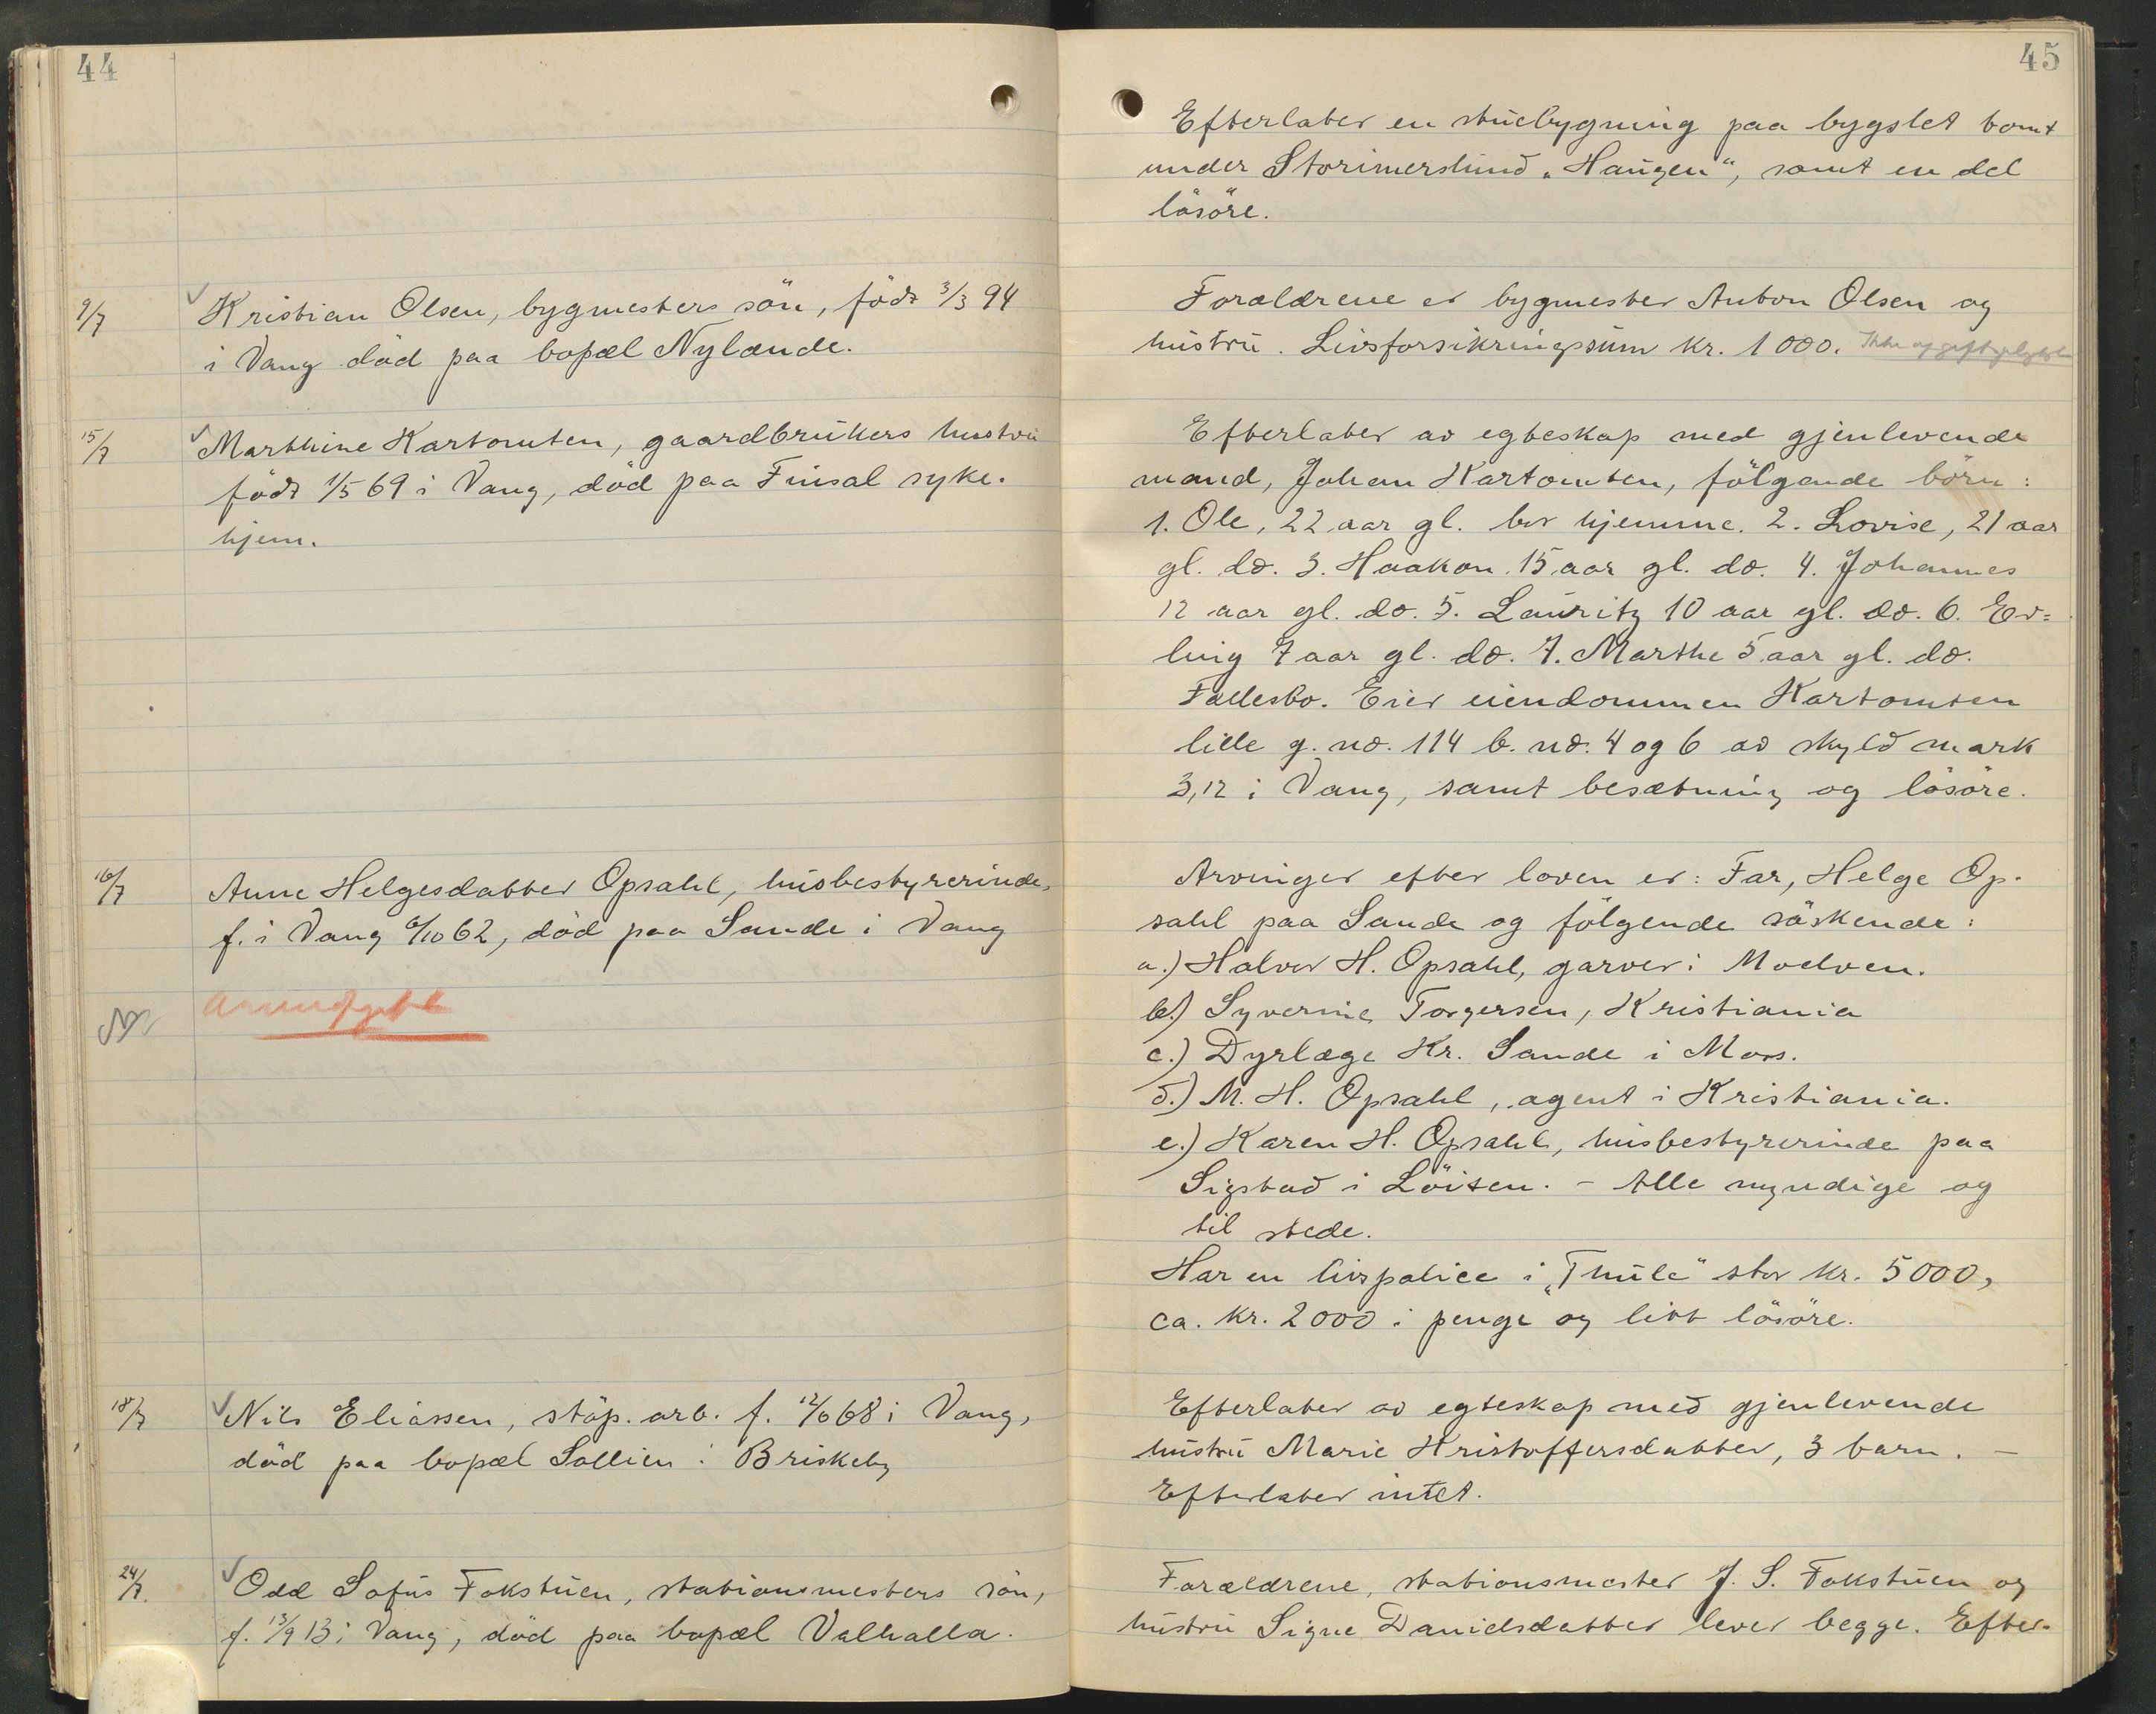 44
9/7
Kristian Olsen, bygmesters sön, födt 3/3 94
i Vang död paa bopæl Nylænde.
15/7
Marthine Kartomten, gaardbrukers hustru
födt 1/5 69 i Vang, död paa Finsal syke-
hjem.
16/7
Anne Helgesdatter Opsahl, husbestyrerinde,
f. i Vang 6/10 62, död paa Sande i Vang
18/7
Nils Eliassen, stöp. arb. f. 12/6 68 i Vang,
död paa bopæl Sollien i Briskeby
24/7.
Odd Sofus Fokstuen, stationsmesters sön,
f. 13/9 13 i Vang, död paa bopæl Valhalla.
45
Efterlater en stuebygning paa bygslet tomt
under Storimerslund „Haugen“, samt en del
lösöre.
Forældrene er bygmester Anton Olsen og
hustru. Livsforsikringssum kr. 1000. Ikke
Efterlater av egteskap med gjenlevende
mand, Johan Kartomten, fölgende börn:
1. Ole, 22 aar gl. bor hjemme. 2. Lovise, 21 aar
gl. do. 3. Haakon 15 aar gl. do. 4. Johannes
12 aar gl. do. 5. Lauritz 10 aar gl. do. 6. Er=
ling 7 aar gl. do. 7. Marthe 5 aar gl. do.
Fællesbo. Eier eiendommen Kartomten
lille g. no. 114 b. no. 4 og 6 av skyld mark
3,12 i Vang, samt besætning og lösöre.
Arvinger efter loven er: Far, Helge Op-
sahl paa Sande og fölgende söskende:
a.) Halvor H. Opsahl, garver i Moelven.
b.) Syverine Torgersen, Kristiania
c.) Dyrlæge Kr. Sande i Moss.
d.) M. H. Opsahl, agent i Kristiania.
e.) Karen H. Opsahl, husbestyrerinde paa
Sigstad i Löiten. - Alle myndige og
til stede.
Har en livspolice i „Thule“ stor kr. 5000,
ca. kr. 2000 i penge og litt lösöre.
Efterlater av egteskap med gjenlevende
hustru Marie Kristoffersdatter, 3 barn. —
Efterlater intet.
Forældrene, stationsmester J. S. Fokstuen og
hustru Signe Danielsdatter lever begge. Efter-